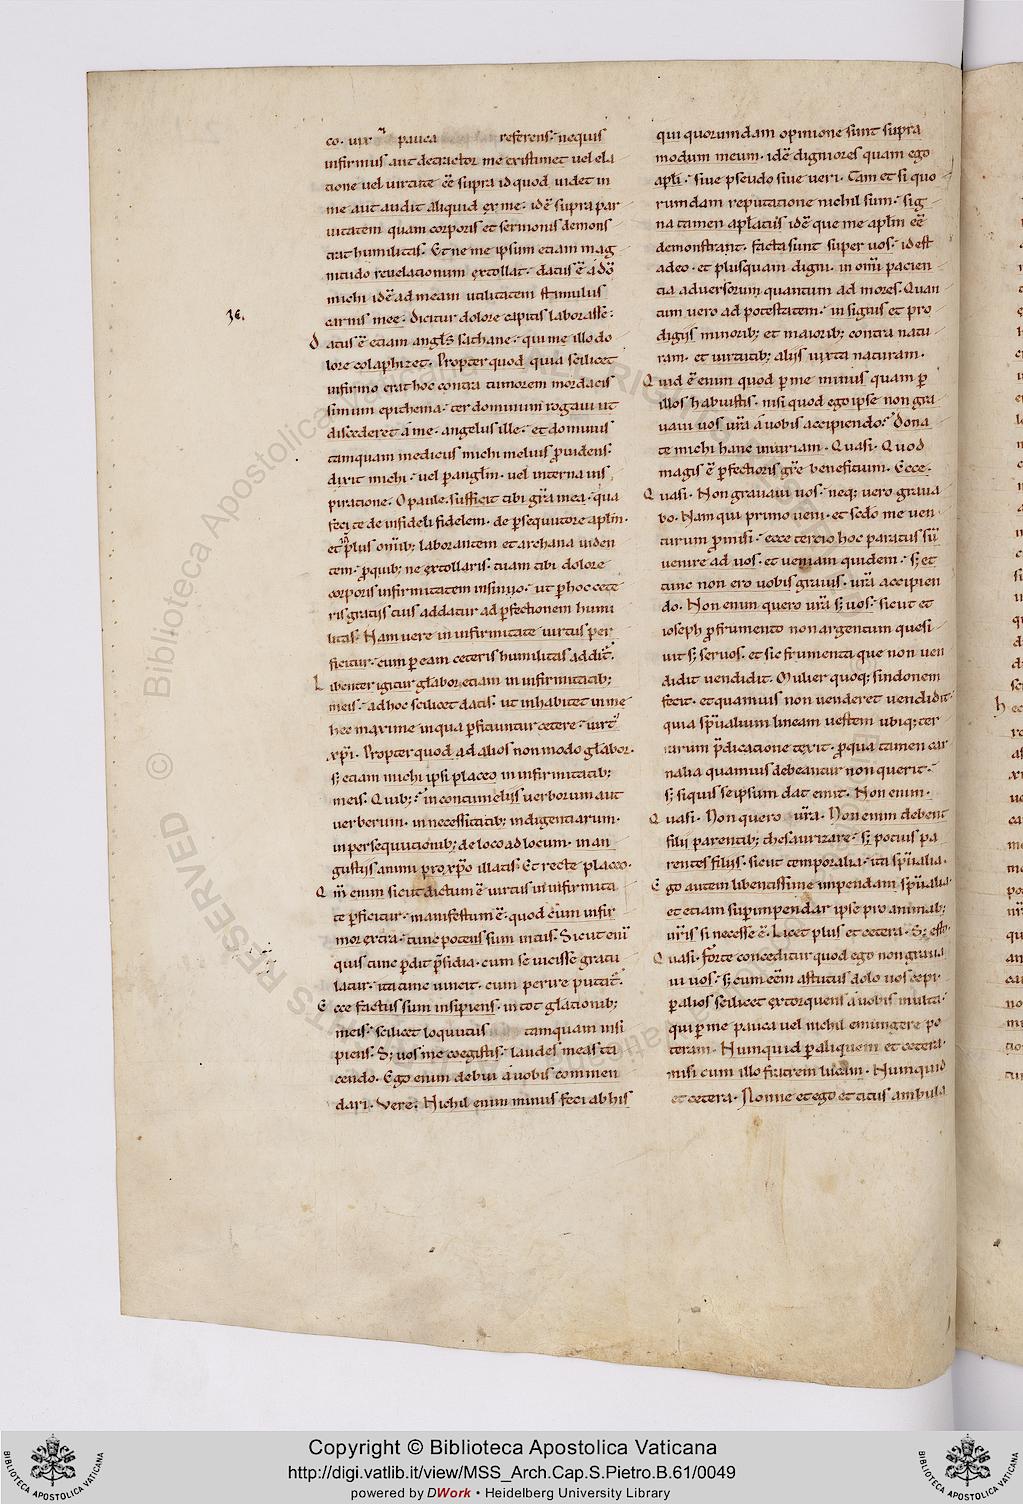 pauca referens. nequis
infirmus aut detractor me existimet vel ela
tione vel virtute eē supra id quod videt in
me aut audit aliquid ex me. idē supra par
uitatem quam corporis et sermonis demons
trat humilitas. Et ne me ipsum etiam mag
nitudo reuelationum extollat. datus ē a dō
michi idē ad meam utilitatem stimulus
carnis mee. Dicitur dolore capitis laborasse.
Datus ē etiam angls sathane. qui me illo do
lore colaphizet. Propter quod quia scilicet
infirmo erat hoc contra tumorem mordacis
simum epithema. ter dominum rogaui ut
discederet a me. angelus ille. et dominus
tamquam medicus michi melius prouidens.
dixit michi. vel p anglm. vel interna ins
piratione. O paule. sufficit tibi gra mea. qua
feci te de infideli fidelem. de psequutore aplm.
et plus omib; laborantem et archana viden
tem. pro quib; ne extollaris. tuam tibi dolore
corporis infirmitatem insinuo. ut p hoc cete
ris gratijs tuis addatur ad pfectionem humi
litas. Nam vere in infirmitate virtus per
ficitur. cum p eam ceteris humilitas addit.
Libenter igitur glabor etiam in infirmitatib;
meis. ad hoc scilicet datis. ut inhabitet in me
hec maxime in qua pficiuntur cetere. virt
xpi. Propter quod ad alios non modo glabor.
s; etiam michi ipsi placeo in infirmitatib;
meis. Quib;. in contumelijs verborum aut
uerberum. in necessitatib; indigentiarum.
in persequutionib; de loco ad locum. in an
gustijs animi pro xpo illatis. Et recte placeo.
Qm enim sicut dictum ē virtus in infirmita
te pficitur. manifestum ē. quod cum infir
mor extra. tunc potens sum intus. Sicut enī
quis tunc pdit psidia. cum se uicisse gratu
latur. ita tunc uincit. cum perire putat.
Ecce factus sum insipiens. in tot glationib;
meis. scilicet loquutus tamquam insi
piens. S; uos me coegistis. laudes meas ta
cendo. Ego enim debui a uobis commen
dari. Vere. Nichil enim minus feci ab his
3e.
qui quorumdam opinione sunt supra
modum meum. idē digniores quam ego
apli. siue pseudo siue veri. Tam et si quo
rumdam reputatione nichil sum. sig
na tamen aplatus idē que me aplm eē
demonstrant. facta sunt super uos. id est
adeo. et plusquam digni. in omi pacien
tia aduersorum quantum ad mores. Quan
tum uero ad potestatem. in signis et pro
digijs minorib; et maiorib; contra natu
ram. et uirtutib; alijs iuxta naturam.
Quid ē enim quod p me minus quam p
illos habuistis. nisi quod ego ipse non gra
uaui uos ura a uobis accipiendo. Dona
te michi hanc iniuriam. Quasi. Quod
magis ē pfectioris gre beneficium. Ecce.
Quasi. Non grauaui uos. neq; uero graua
bo. Nam qui primo ueni. et sedo me uen
turum promisi. ecce tercio hoc paratus sū
uenire ad uos. et ueniam quidem. s; et
tunc non ero uobis grauis. ura accipien
do. Non enim quero ura s; uos. sicut et
ioseph pro frumento non argentum quesi
uit s; seruos. et sic frumenta que non uen
didit uendidit. Mulier quoq; sindonem
fecit. et quamuis non uenderet uendidit.
quia spualium lineam uestem ubiq; ter
rarum pdicatione texit. pro qua tamen car
nalia quamuis debeantur non querit.
s; siquis seipsum dat emit. Non enim.
Quasi. Non quero ura. Non enim debent
filij parentib; thesaurizare. s; potius pa
rentes filijs. sicut temporalia. ita spualia.
Ego autem libentissime impendam spualia.
et etiam supimpendar ipse pro animab;
uris si necesse ē. Licet plus et cetera. S; esto.
Quasi. Forte conceditur quod ego non graua
ui uos. s; cum eēm astutus dolo uos cepi.
p alios scilicet extorquens a uobis multa.
qui p me pauca uel nichil emungere po
teram. Numquid p aliquem et cetera.
nisi cum illo fratrem lucam. Numquid
et cetera. Nonne et ego et titus ambula
© Biblioteca Apostolica Vaticana
ALL RIGHTS RESERVED
Copyright © Biblioteca Apostolica Vaticana
http://digi.vatlib.it/view/MSS_Arch.Cap.S.Pietro.B.61/0049
powered by DWork • Heidelberg University Library
BIBLIOTECA APOSTOLICA VATICANA
BIBLIOTECA APOSTOLICA VATICANA